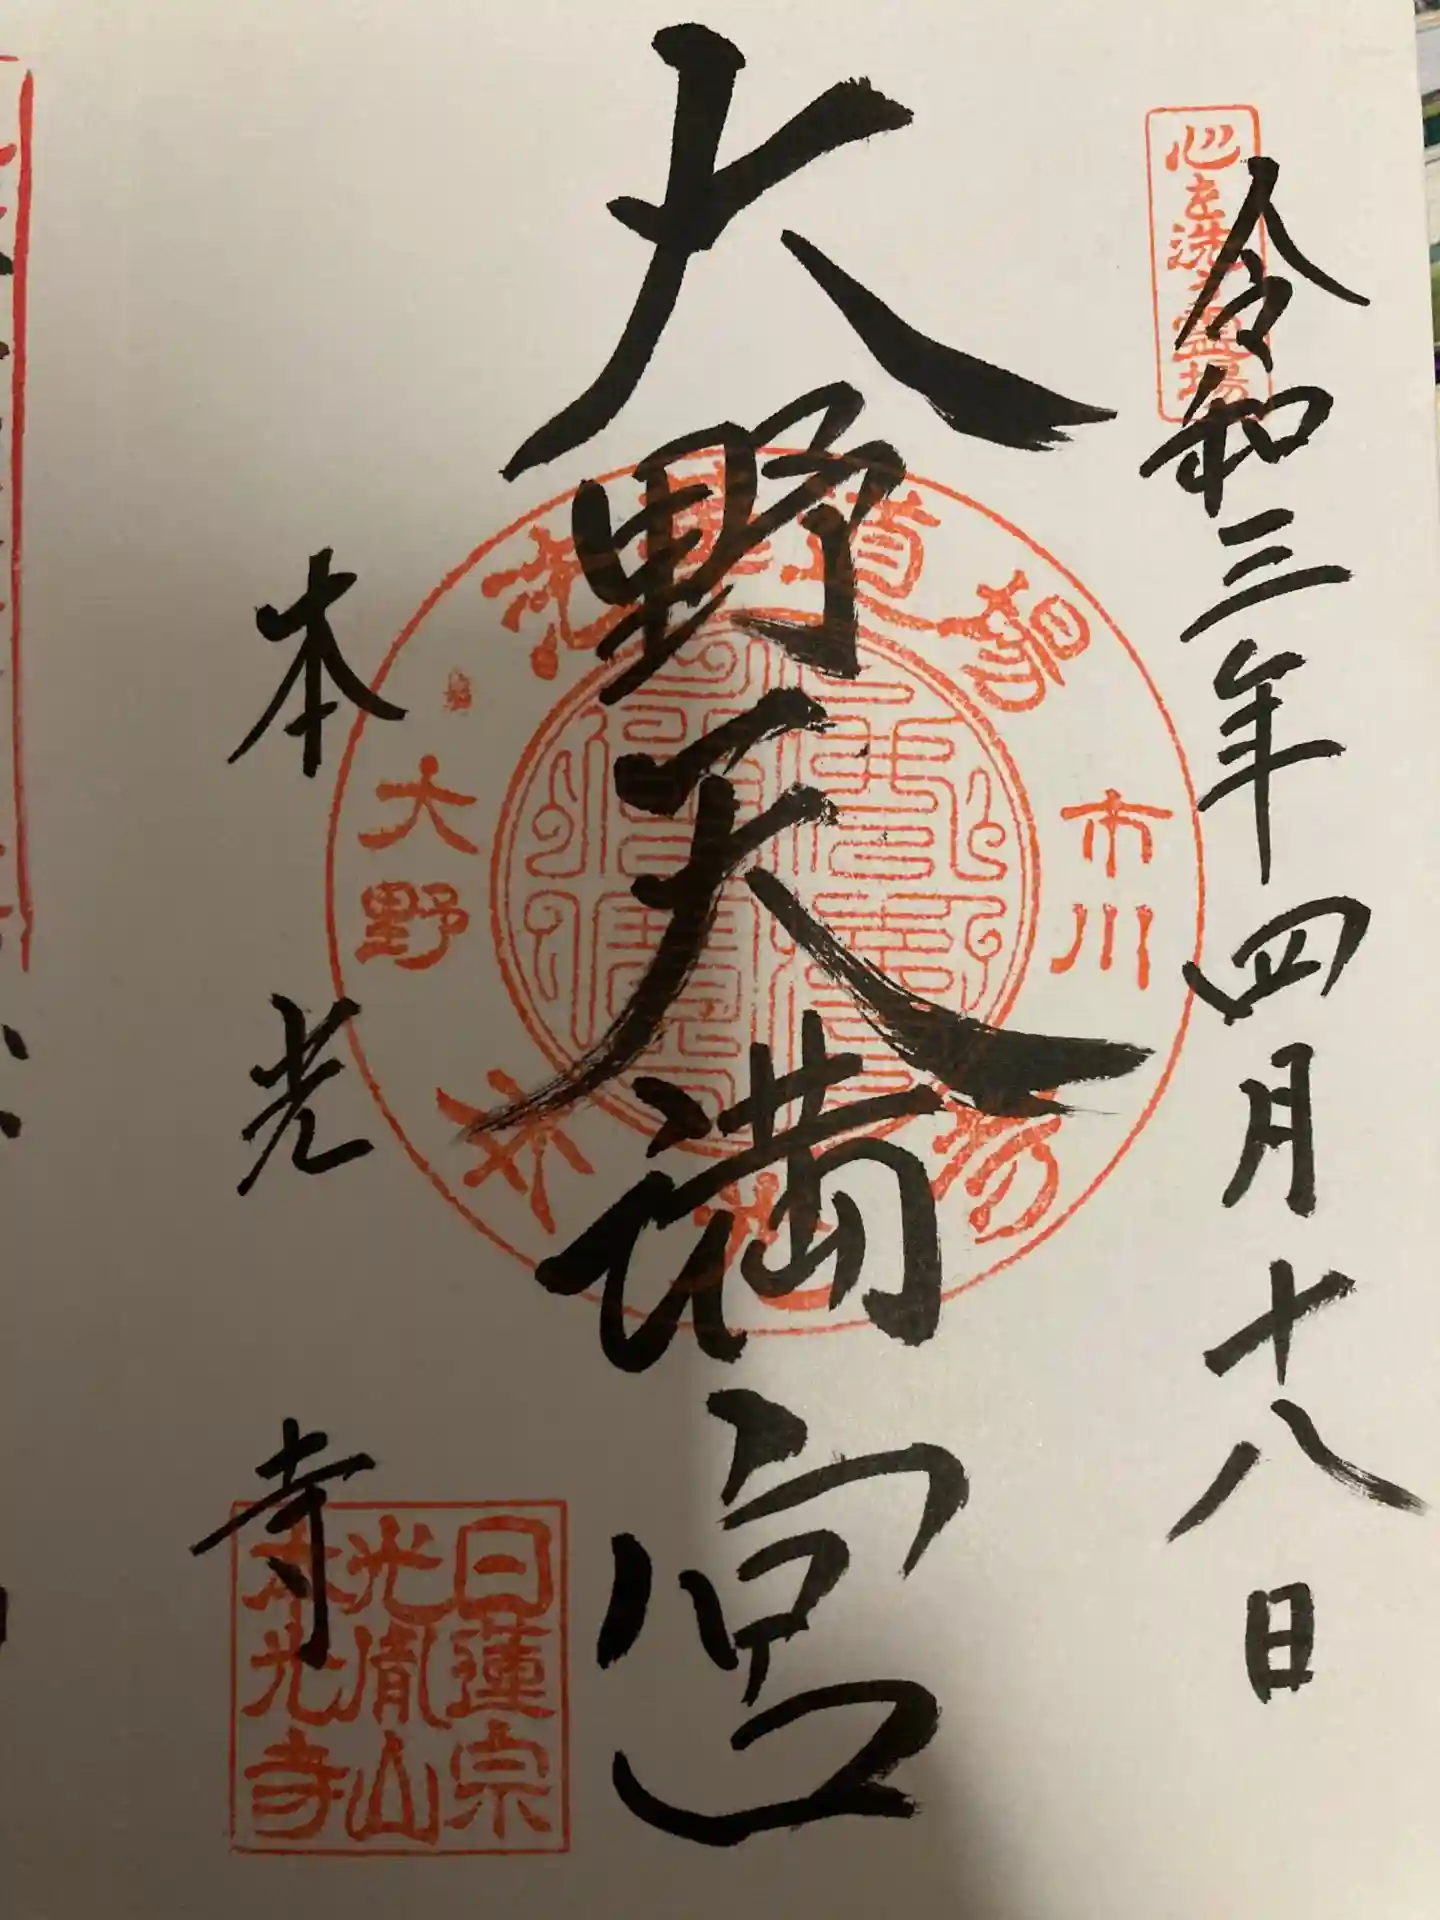 心を洗う霊場
令和三年四月十八日
大野天満宮
道場
市川
大野
本光寺
日蓮宗
光胤山
本光寺